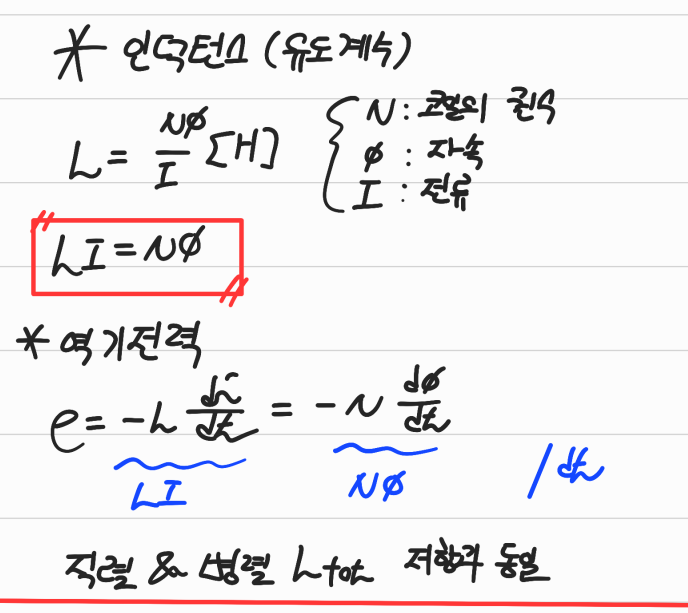 * 인덕턴스 (유도계수)
L = Nφ/I [H] { N : 코일의 권수
φ : 자속
I : 전류
LI = Nφ
* 역기전력
e = -L di/dt = -N dφ/dt
LI Nφ / dt
직렬 & 병렬 Ltot 저항과 동일